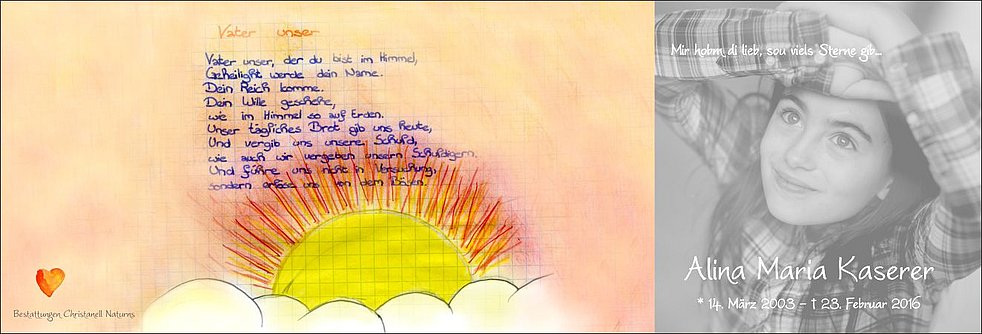 Vater unser
Vater unser, der du bist im Himmel,
Geheilight werde dein Name.
Dein Reich komme.
Dein Wille geschehe,
wie im Himmel so auf Erden.
Unser tägliches Brot gib uns heute,
Und vergib uns unsere Schuld,
wie auch wir vergeben unsern Schuldigern.
Und führe uns nicht in Versuchung,
sondern erlöse uns von dem Bösen.
Bestattungen Christanell Naturns
Mir hobm di lieb, sou viels Sterne gib...
Alina Maria Kaserer
* 14. März 2003 – † 23. Februar 2016